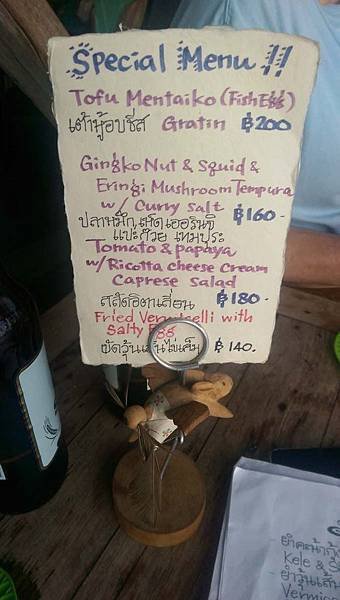 Special Menu !!
Tofu Mentaiko (Fish Egg)
เต้าหู้อบชีส Gratin ฿200
Gingko Nut & Squid &
Eringi Mushroom Tempura
w/ Curry Salt ฿160.-
ปลาหมึก,เห็ดเออรินจิ
แปะก๊วย เทมปุระ
Tomato & papaya
w/Ricotta cheese Cream
Caprese Salad
สลัดอิตาเลี่ยน ฿180.-
Fried Vermicelli with
Salty Egg
ผัดวุ้นเส้นไข่เค็ม ฿140.
Kele &